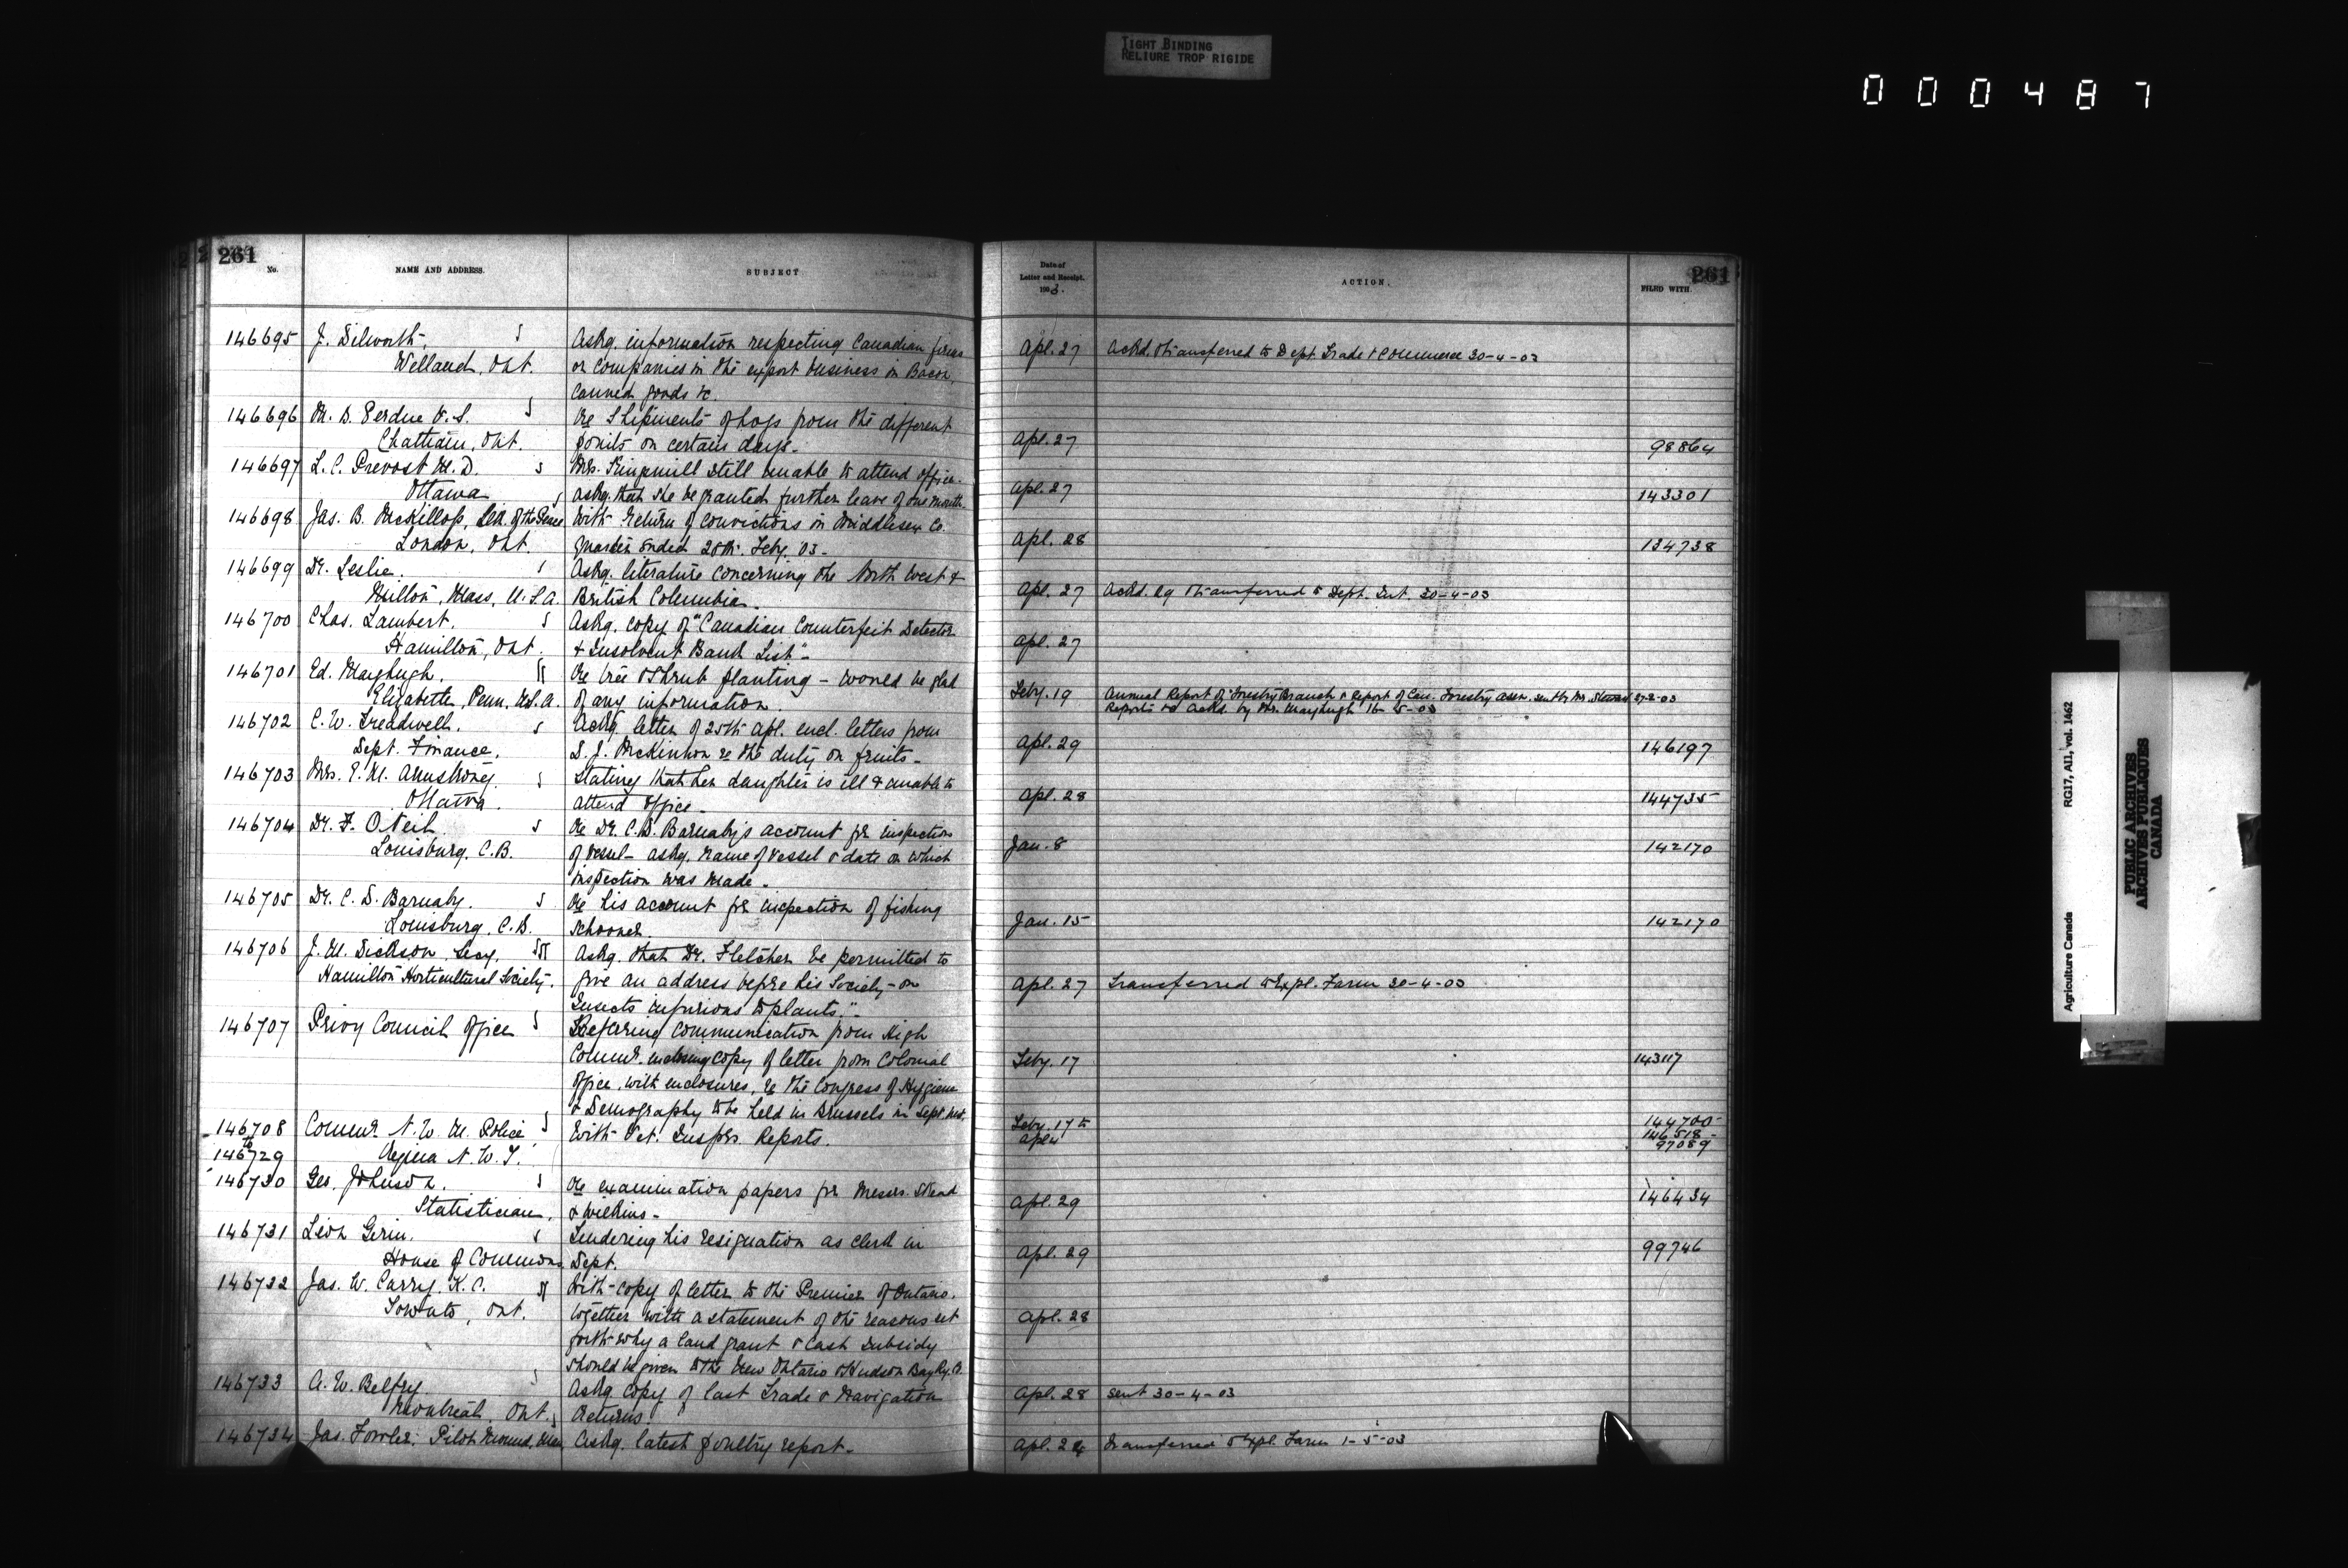 TIGHT BINDING
RELIURE TROP RIGIDE
000487
261
No.
NAME AND ADDRESS.
SUBJECT
Date of
Letter and Receipt.
1903.
ACTION.
FILED WITH.
261
146695 J. Dilworth, Askg. information respecting Canadian firms
Welland, Ont. or Companies in the export business in Bacon,
canned goods &c.
Apl. 27 Ackd. & transferred to Dept Trade & Commerce 30-4-03
146696 M. D. Perdue V.S. Re Shipments of hogs from the different
Chatham, Ont. points on certain days-
Apl. 27 98864
146697 L. C. Prevost M.D. Mrs. Kingsmill still unable to attend office.
Ottawa Askg. that she be granted further leave of one month.
Apl. 27 143301
146698 Jas. B. McKillop, Clk. of the Peace With return of convictions in Middlesex Co.
London, Ont. Quarter ended 28th. Feby. 03-
Apl. 28 134738
146699 Dr. Leslie. Askg. literature concerning the North West &
Milton, Mass, U.S.A. British Columbia.
Apl. 27 Ackd. & transferred to Dept. Int. 30-4-03
146700 Chas. Lambert. Askg. copy of "Canadian Counterfeit Detector
Hamilton, Ont. & Insolvent Bank List"-
Apl. 27
146701 Ed. Mayhugh. Re tree & Shrub planting - would be glad
Elizabeth, Penn, U.S.A. of any information.
Feby. 19 Annual Report of Forestry Branch & Report of Can. Forestry Assn. sent by Mr. Stewart 27-2-03
Reports recd Ackd. by Mr. Mayhugh 16-5-03
146702 C. W. Treadwell. Ackg. letter of 25th Apl. encl. letters from
Dept. Finance. S. J. McKinnon re the duty on fruits-
Apl. 29 146197
146703 Mrs. E. M. Armstrong. Stating that her daughter is ill & unable to
Ottawa. attend office-
Apl. 28 144735
146704 Dr. F. O'Neil Re Dr. C. D. Barnaby's account for inspection
Louisburg, C.B. of Vessel- askg. name of vessel & date on which
inspection was made.
Jan. 8 142170
146705 Dr. C. D. Barnaby. Re his account for inspection of fishing
Louisburg, C.B. schooner.
Jan. 15 142170
146706 J. M. Dickson, Secy. Askg. that Dr. Fletcher be permitted to
Hamilton Horticultural Society. give an address before his Society - on
Insects injurious to plants."-
Apl. 27 Transferred to Expl. Farm 30-4-03
146707 Privy Council Office Referring communication from High
Commr. enclosing copy of letter from Colonial
Office, with enclosures, re the Congress of Hygiene
& Demography to be held in Brussels in Sept. next.
Feby. 17 143117
146708 Commr. N. W. M. Police With Vet. Inspr. Reports.
to
146729 Regina N.W.T.
Feby. 17 to
Apl 4
144700-
146518-
97089
146730 Geo. Johnson. Re examination papers for Messrs. Stead
Statistician. & Wilkins-
Apl. 29 146434
146731 Leon Gerin. Tendering his resignation as clerk in
House of Commons Dept.
Apl. 29 99746
146732 Jas. W. Carry, K.C. With copy of letter to the Premier of Ontario.
Toronto, Ont. together with a statement of the reasons set
forth why a land grant & cash subsidy
should be given to the New Ontario & Hudson Bay Ry. Co.
Apl. 28
146733 A. W. Belfry. Askg copy of last Trade & Navigation
Montreal, Ont. Returns.
Apl. 28 Sent 30-4-03
146734 Jas. Fowler, Pilot Mound, Man. Askg. latest poultry report-
Apl. 24 Transferred to Expl. Farm 1-5-03
Agriculture Canada RG17, AI1, vol. 1462
PUBLIC ARCHIVES
ARCHIVES PUBLIQUES
CANADA